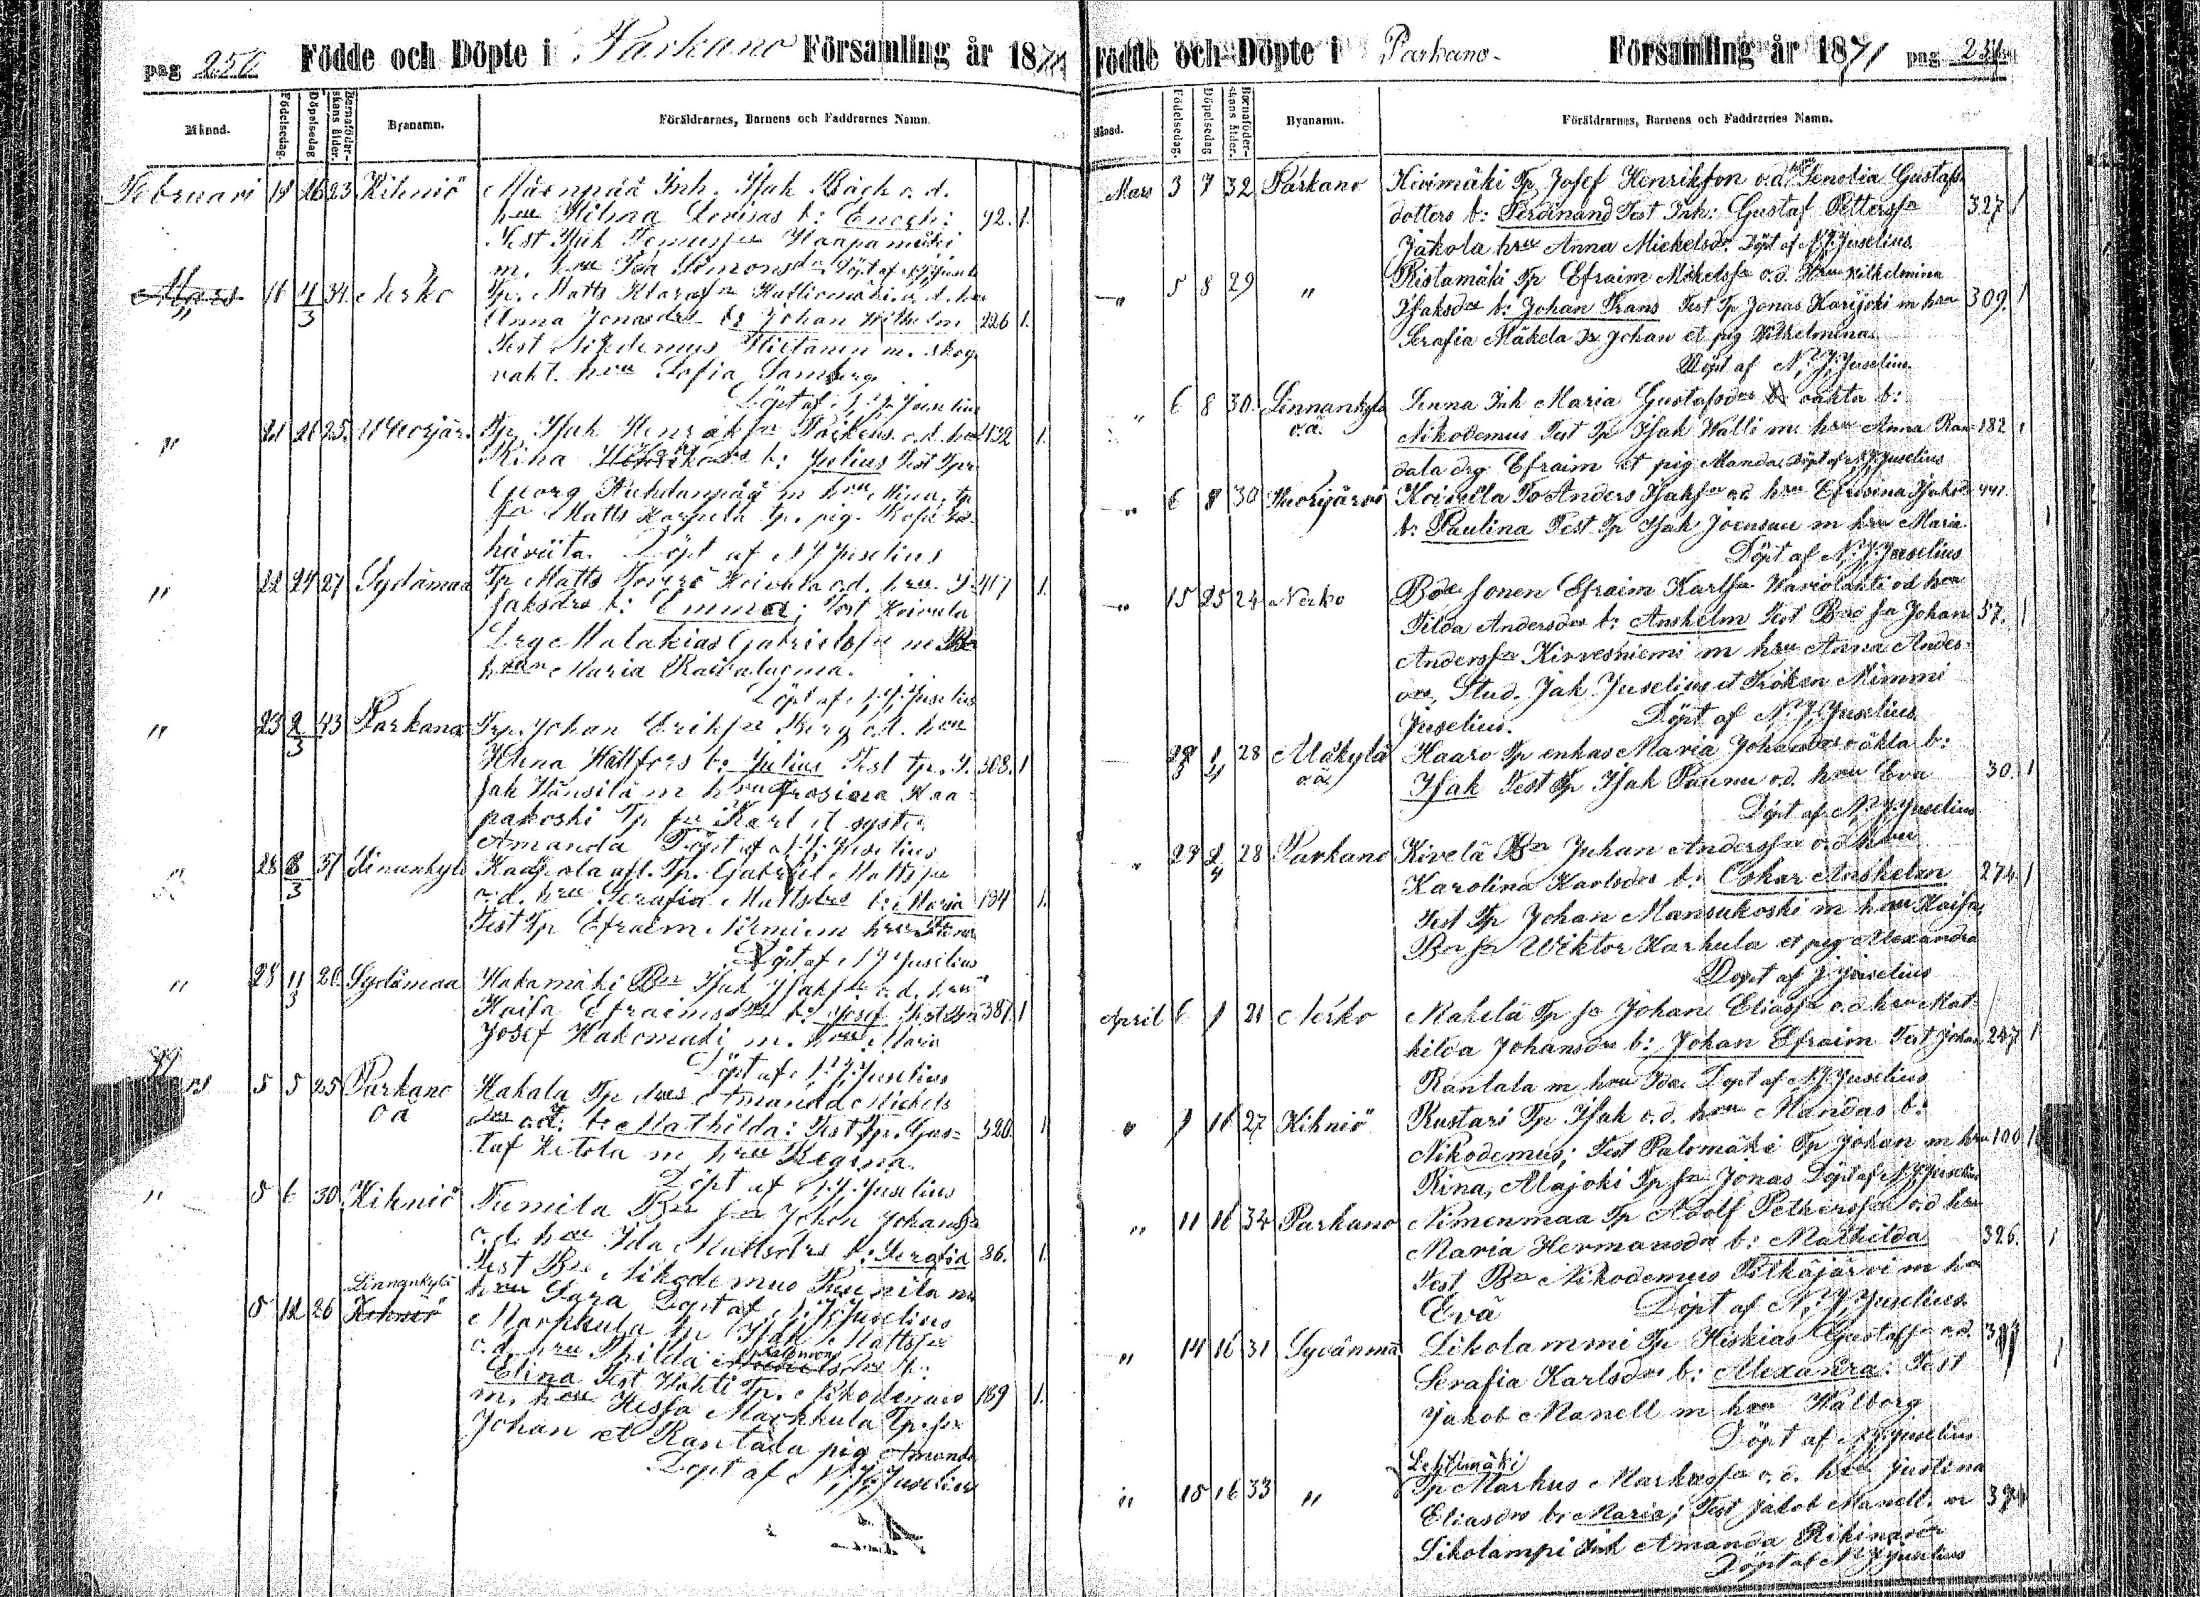 pag 250. Födde och Döpte i Parkano Församling år 1871
Månad. Födelsedag. Döpelsedag Barnaföderskans ålder. Byanamn. Föräldrarnes, Barnens och Faddrarnes Namn.
Februari 18 26 23 Kihniö Mäenpää Inh. Isak Bäck o. d.
hru Wilma Lovisas b: Enoch: 92. 1.
Test Isak Haapamäki
m. hru Ida Simonsdr Döpt af N J Juselius
" 16 4/3 34 Nerko Tp. Matts Kalliomäki o. d. hru
Anna Jonasdrs b: Johan Wilhelm 226 1.
Test Nikodemus Hietanen m. skog
vakt. hru Sofia Samberg
Döpt af N. J. Juselius
" 21 26 25. Wuorijär. Tp. Isak Henriksn o. d. hru 432 1.
Rina b: Julius Test Tpr
Georg m hru Mina, tp
sn Matts tp. pig.
Döpt af N J Juselius
" 22 24 27 Sydämaa Tp Matts Koivula o.d. hru I 417 1.
saksdrs b: Emma; Test Koivula
Drg Malakias Gabrielssn m
hrun Maria
Döpt af N. J. Juselius
" 23 2/3 43 Parkano Trp. Johan Erikssn Berg o.d. hru
Helena Hallfors b: Julius Test tp. I. 308. 1
sak Hänsilä m hru Frosina Haa
pakoski Tp sn Karl et syster
Amanda Döpt af N. J. Juselius
" 28 8/3 37 Linnankylä aft. Tp. Gabriel Mattssn
o. d. hru Serafia Mattsdrs b: Maria 184 1.
Test Tp Efraim Nieminen hru
Döpt af N J Juselius
" 28 11/3 20. Sydämaa Hakamäki Bn Isak Isakssn o. d. hru
Kaisa Efraimsdrs b: Josef Test Bn 381. 1
Josef Hakomäki m. hru Maria
Döpt af N. J. Juselius
Mars 5 5 25 Parkano Hakala Tp drs Amanda Michels
o ä drs o.ä. b: Mathilda: Test Tp. Gus- 320. 1
taf Ketola m hru Regina.
Döpt af N. J. Juselius
" 5 6 30 Kihniö Tumila Bn sn Johan Johanssn
o. d. hru Ida Mattsdrs b: Serafia 86. 1.
Test Bn Nikodemus m
hru Sara Döpt af N. J. Juselius
Linnankylä
5 12 26 Kihniö Markkula tp Isak Mattssn
o. d. hru Thilda Salomons drs b:
Elina Test Wahti Tp. Nikodemus 189 1.
m. hru Hessa Markkula Tp. sn
Johan et Rantala pig Amanda
Döpt af N. J. Juselius
Födde och Döpte i Parkano. Församling år 1871 pag 251
Månad. Födelsedag. Döpelsedag Barnaföderskans ålder. Byanamn. Föräldrarnes, Barnens och Faddrarnes Namn.
Mars 3 7 32 Parkano Kivimäki Tp Josef Henrikson o.d. hru Senobia Gustafs
dotters b: Ferdinand Test Inh: Gustaf Petterssn 327 1
Jakola hru Anna Mickelsdr. Döpt af N J Juselius.
" 5 8 29 " Ristamäki Tp Efraim Mikelssn o.d. Hru Wilhelmina
Isaksdrs b: Johan Frans Test Tp Jonas Karijoki m hru 309. 1
Serafia Mäkela Dr Johan et pig Wilhelmina.
Döpt af N. J. Juselius.
" 6 8 30. Linnankylä Linna Inh Maria Gustafsdrs oäkta b:
o.ä. Nikodemus Test Tp Isak Walli m. hru Anna Ran- 182 1
dala drg Efraim et pig Manda. Döpt af N J Juselius
" 6 8 30 Wuorijärvi Koivula To Anders Isakssn o.d. hru Efrosina Isaksd 441
b: Paulina Test Tp Isak Joensuu m hru Maria 1
Döpt af N. J. Juselius
" 15 25 24 Nerko Bde sonen Efraim Karlssn Wariolahti o d hru
Tilda Andersdrs b: Anshelm Test Bde sn Johan 57. 1
Anderssn Kirvesniemi m hru Anna Anders-
drs, Stud. Jak Juselius et Fröken Mimmi
Juselius. Döpt af N. J. Juselius
28 1/4 28 Alakylä Haaro Tp enkas Maria Johansdrs oäkta b:
o.ä. Isak Test Tp Isak Paunu o.d. hru Eva 30. 1
Döpt af N. J. Juselius
" 29 2/4 28 Parkano Kivelä Bn Juhan Anderssn o.d. hru
Karolina Karlsdrs b: Oskar Anshelm 274. 1
Test Tp Johan Mansukoski m hru Kaisa,
Bn sn Wiktor Karhula et pig Alexandra
Döpt af J. Juselius
April 6 9 21 Nerko Makelä Tp sn Johan Eliassn o.d. hru Mat-
hilda Johansdrs b: Johan Efraim Test Johan 247 1
Rantala m hru Ida. Döpt af N J Juselius
" 9 16 27 Kihniö Rustari Tp Isak o.d. hru Mandas b:
Nikodemus; Test Palomäki Tp Johan m hru 100 1
Rina, Alajoki Tp sn Jonas Döpt af N J Juselius
" 11 16 34 Parkano Niemenmaa Tp Adolf Petterssn o.d hru
Maria Hermansdrs b: Mathilda 326. 1
Test Bn Nikodemus Pitkäjärvi m hru
Eva Döpt af N. J. Juselius.
" 14 16 31 Sydänmaa Likolammi Tp Hiskias Gustafssn o.d.
Serafia Karlsdrs b: Alexandra: Test 1
Jakob Manell m hru Walborg
Döpt af N J Juselius
Lehtimäki
" 15 16 33 " Tp Markus Markussn o.d. hru Justina
Eliasdrs b: Maria; Test Jakob Manell. m
Likolampi Inh Amanda
Döpt af N J Juselius